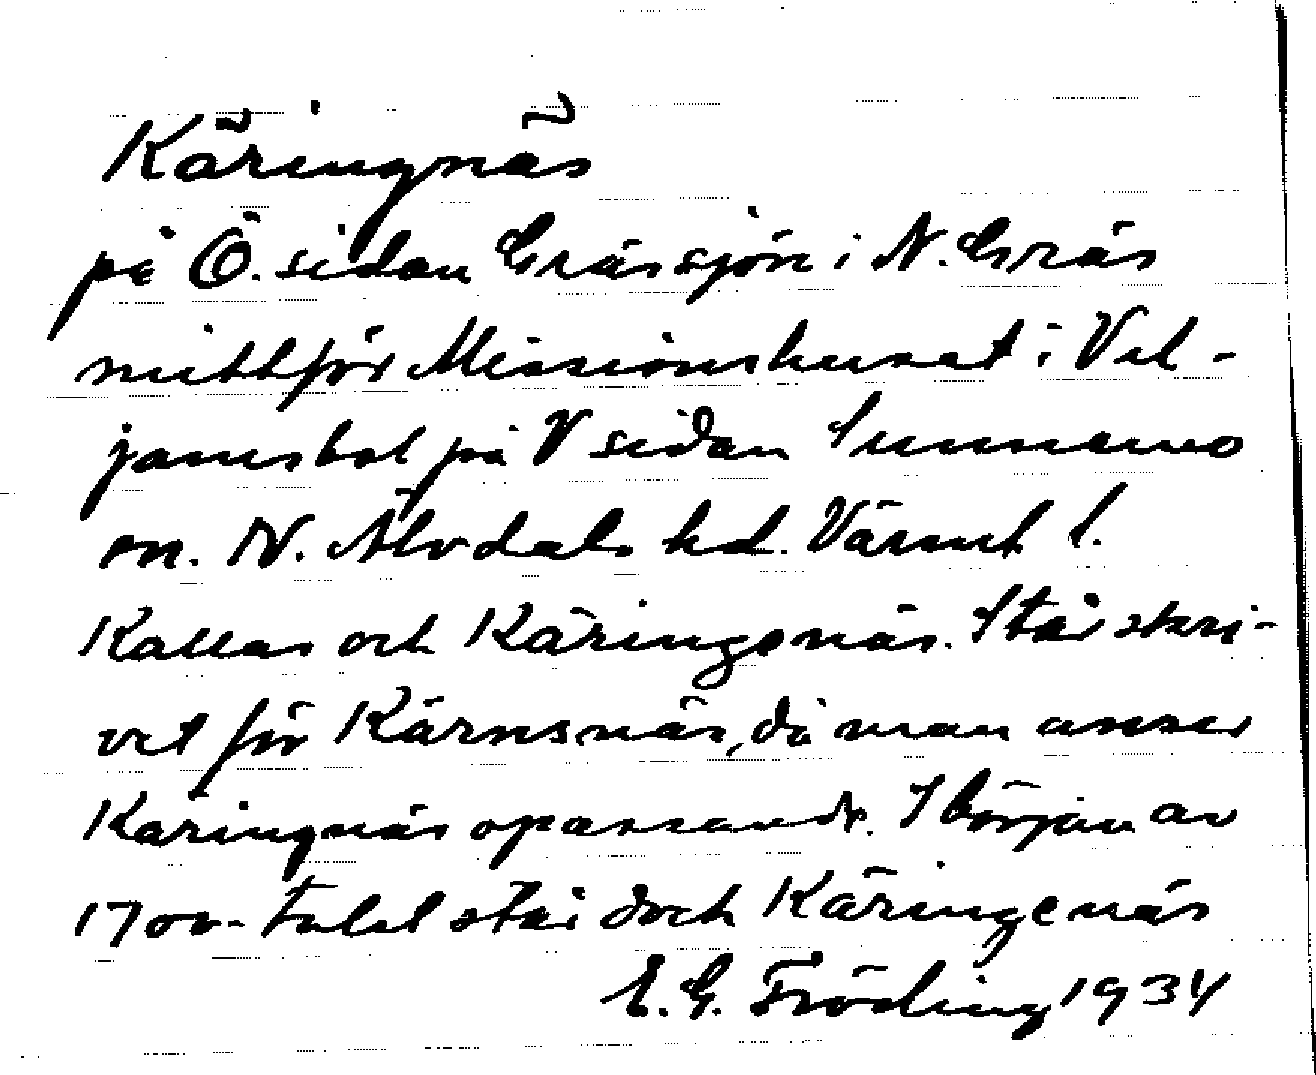 Käringnäs
på Ö. sidan Grässjön i N. Gräs
mittför Missionshuset i Vil-
jamsbol på V sidan Sunnemo
sn. N. Älvdals hd. Värml l.
Kallas och Käringsnäs. Står skri-
vet för Kärnsnäs, då man anser
Käringnäs opassande. I början av
1700-talet står dock Käringenäs
E. G. Fröding 1934